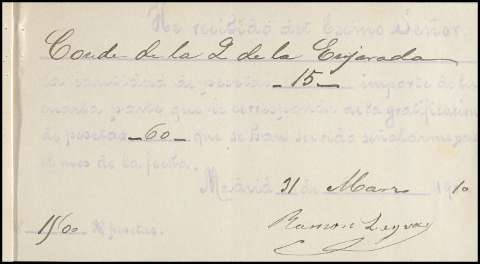 He recibido del Excmo Señor
Conde de la Q de la Enjarada
la cantidad de pesetas -15- importe de la
cuarta parte que le corresponde de la gratificacion
de pesetas -60- que se han servido señalarme para
el mes de la fecha.
Madrid 31 de Marzo 1910
15'00 pesetas.
Ramon Leyva